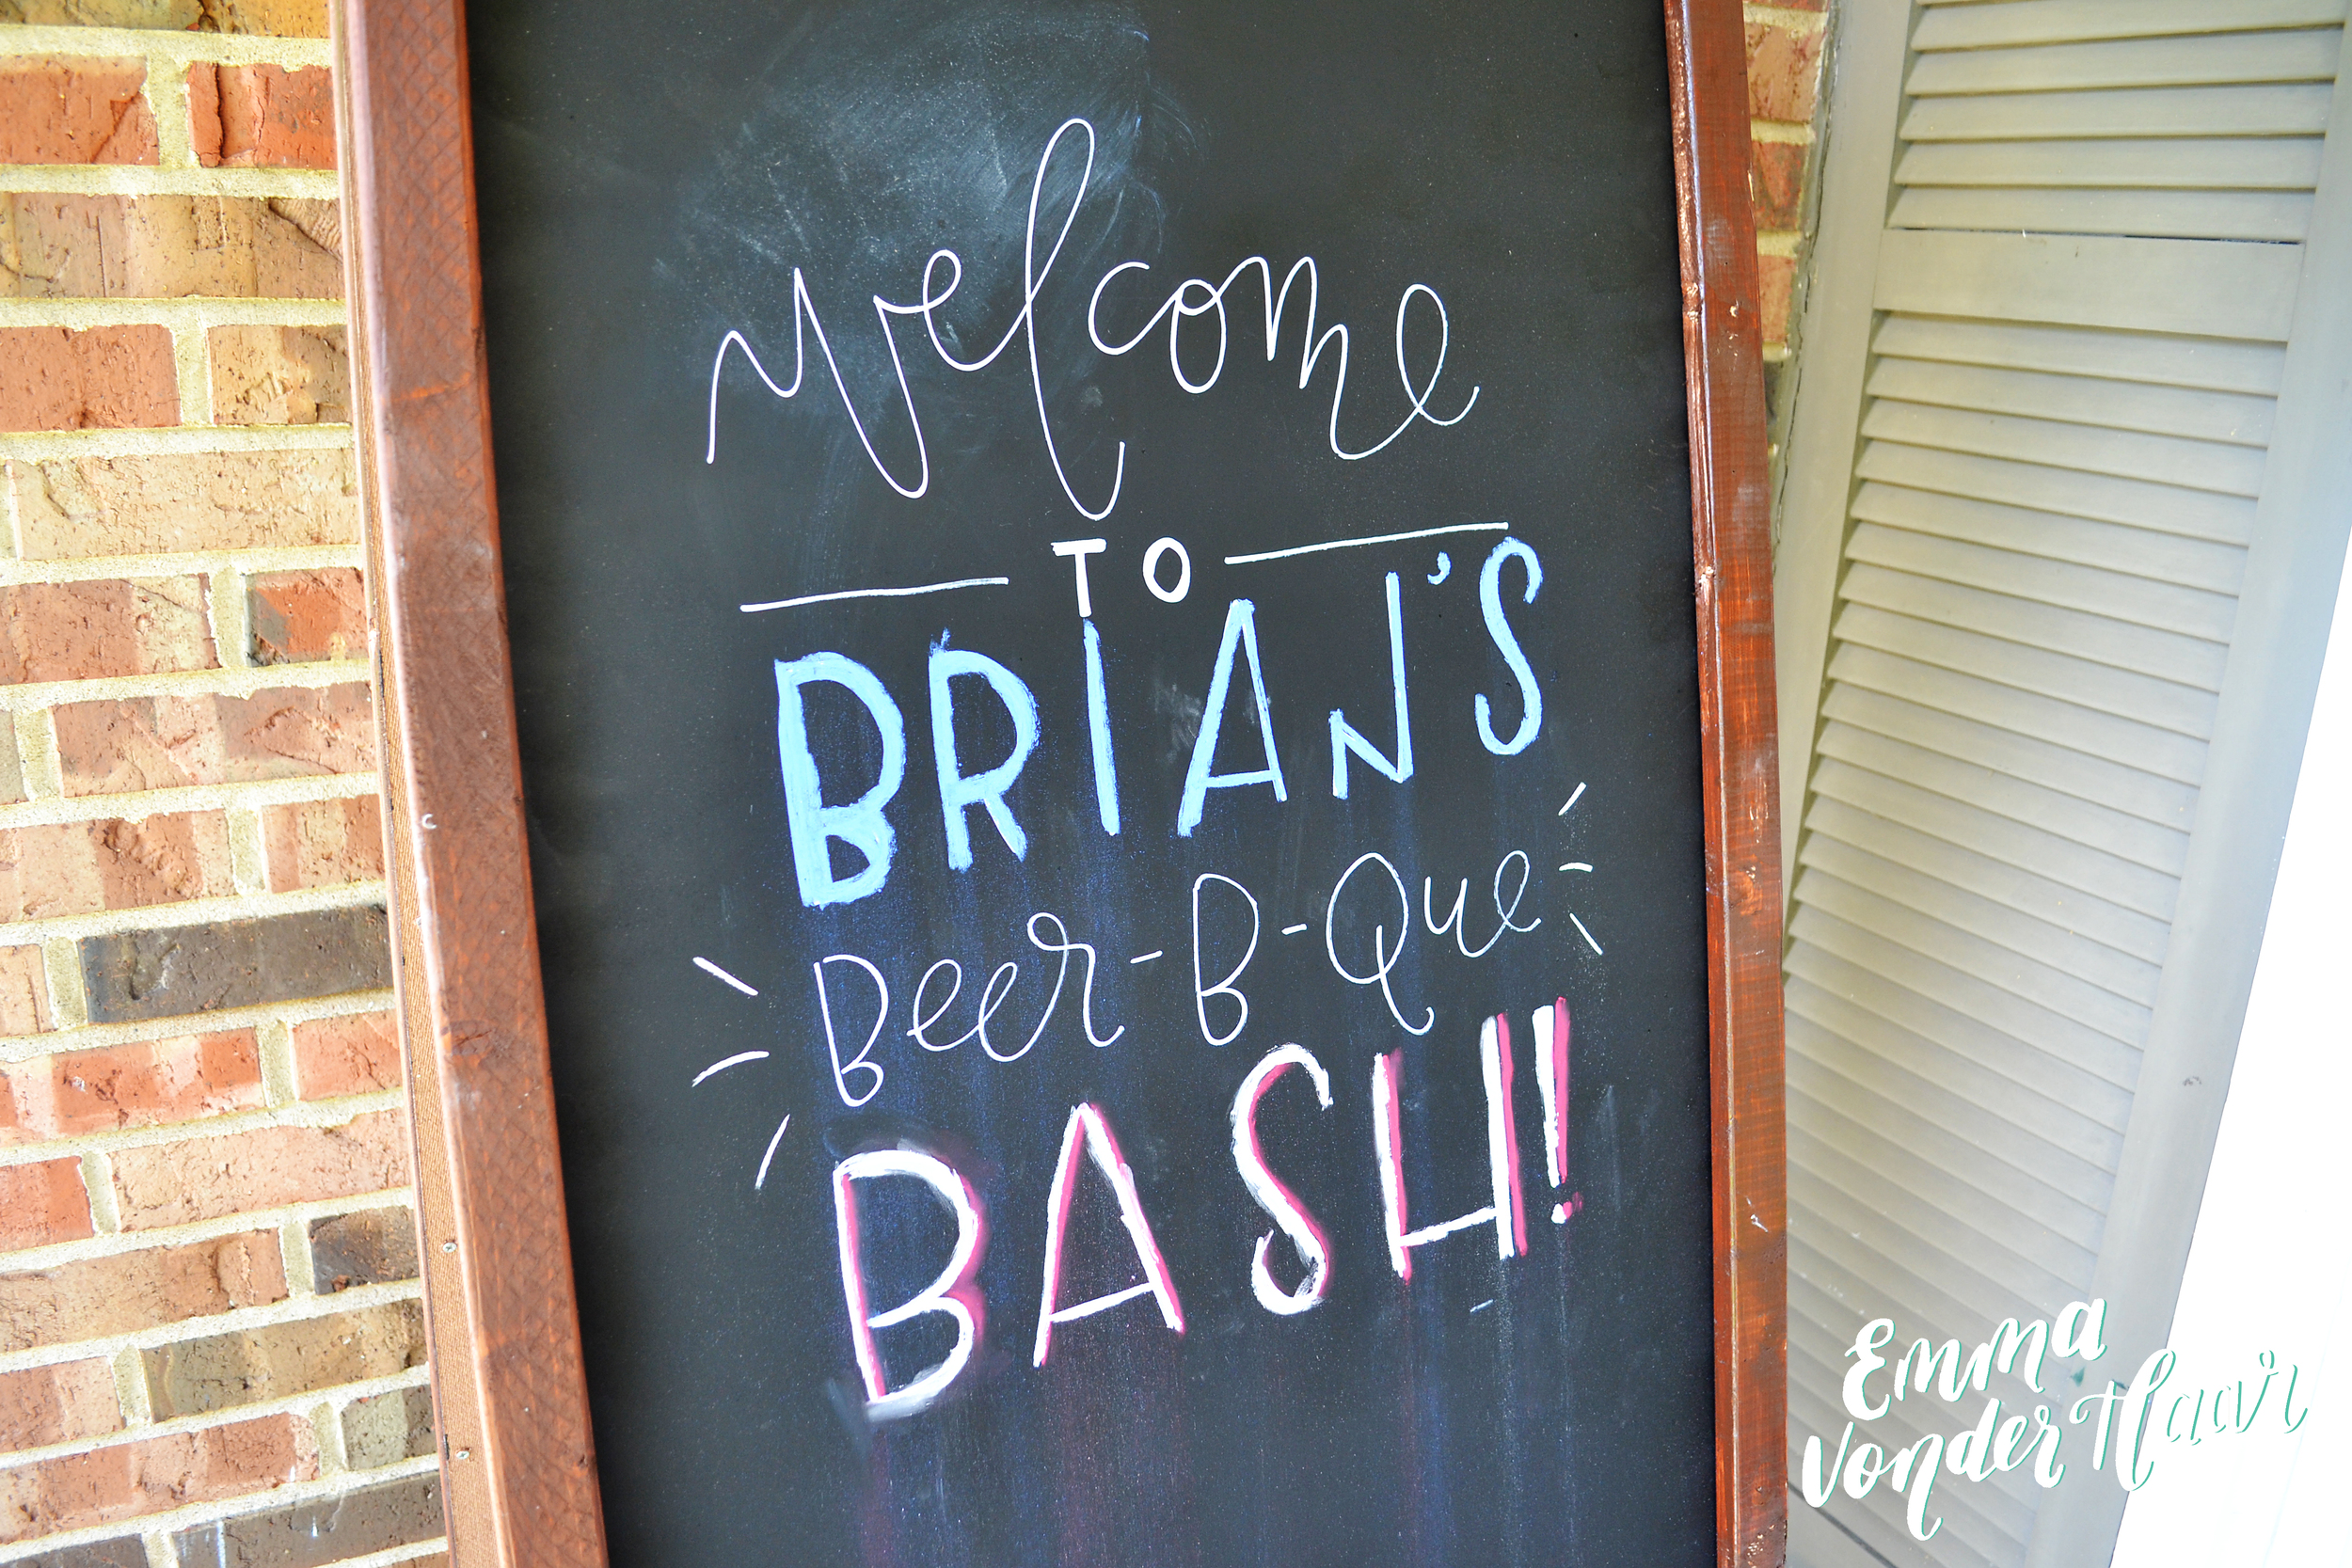 welcome
TO
BRIAN'S
Beer-B-Que
BASH!
Emma
Vonder Haar